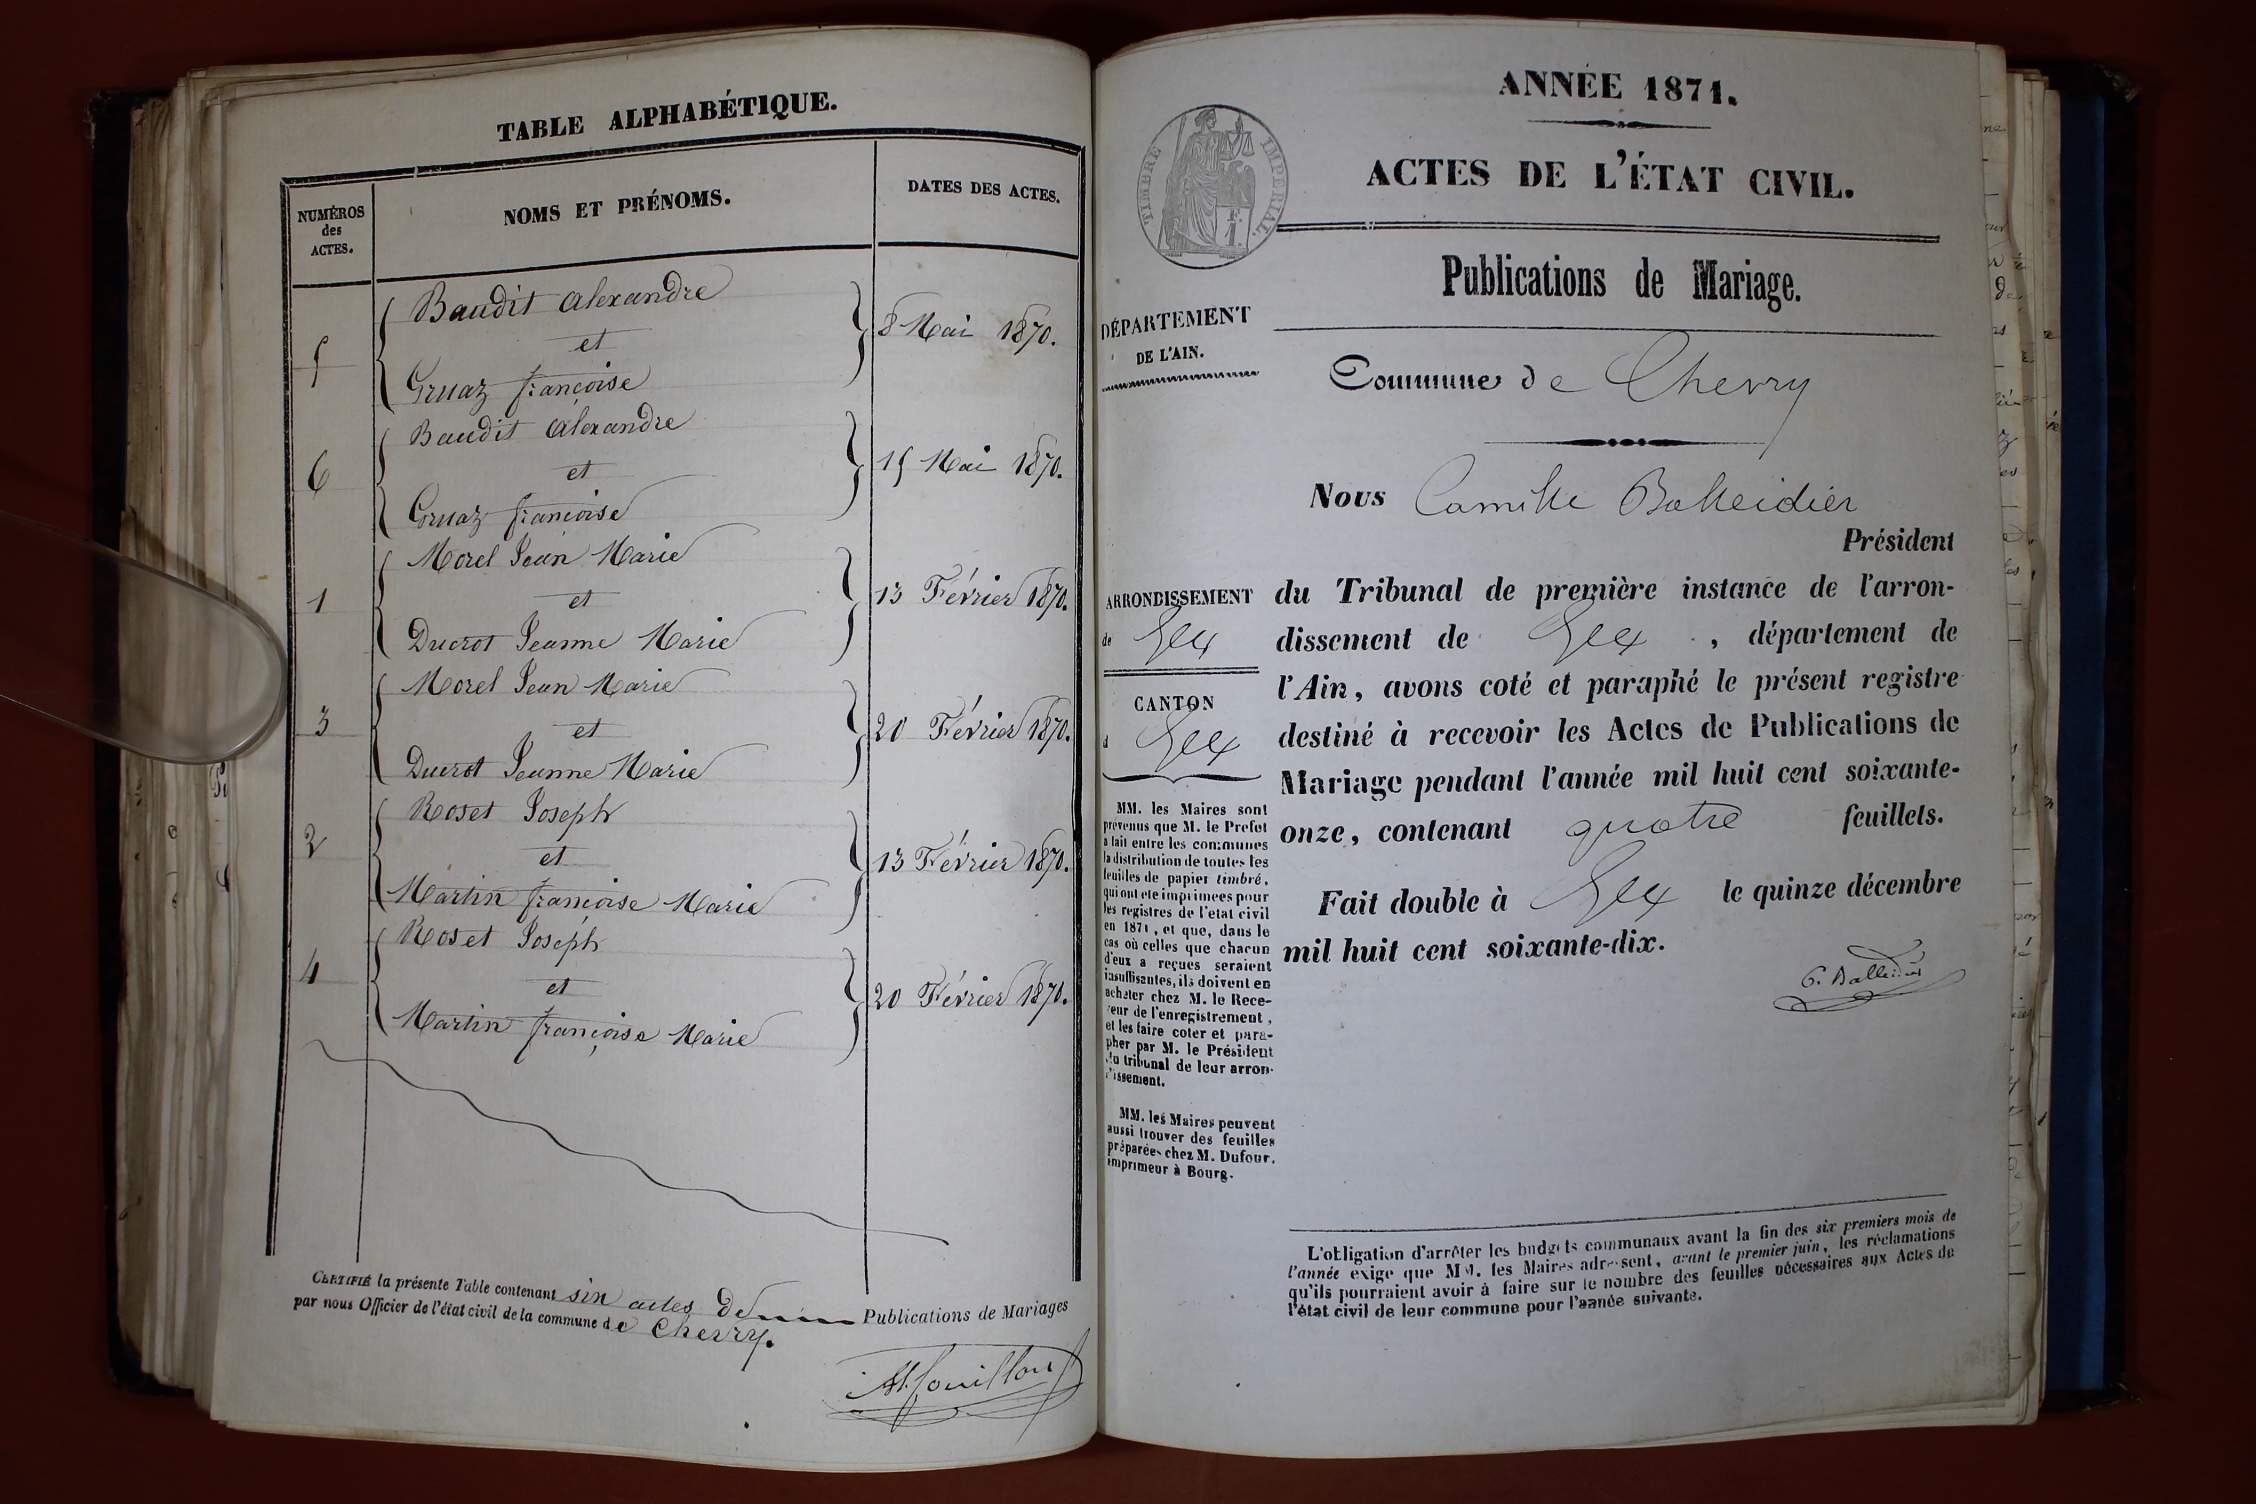 TABLE ALPHABÉTIQUE.
NUMÉROS
des
ACTES.
NOMS ET PRÉNOMS.
DATES DES ACTES.
Baudit Alexandre
5 et 8 Mai 1870.
Gruaz françoise
Baudit Alexandre
6 et 15 Mai 1870.
Gruaz francoise
Morel Jean Marie
1 et 13 Février 1870.
Ducrot Jeanne Marie
Morel Jean Marie
3 et 20 Février 1870.
Ducrot Jeanne Marie
Roset Joseph
2 et 13 Février 1870.
Martin francoise Marie
Roset Joseph
4 et 20 Février 1870.
Martin françoise Marie
CERTIFIÉ la présente Table contenant six actes de Publications de Mariages
par nous Officier de l'état civil de la commune de Chevry.
ANNÉE 1871.
ACTES DE L'ÉTAT CIVIL.
TIMBRE IMPERIAL.
1 F.
Publications de Mariage.
DÉPARTEMENT
DE L'AIN.
Commune de Chevry
Nous Camille Balleidier
Président
du Tribunal de première instance de l'arron-
dissement de Gex, département de
l'Ain, avons coté et paraphé le présent registre
destiné à recevoir les Actes de Publications de
Mariage pendant l'année mil huit cent soixante-
onze, contenant quatre feuillets.
Fait double à Gex le quinze décembre
mil huit cent soixante-dix.
C. Balleidier
ARRONDISSEMENT
de Gex
CANTON
d Gex
MM. les Maires sont
prévenus que M. le Prefet
a fait entre les communes
la distribution de toutes les
feuilles de papier timbré,
qui ont ete imprimees pour
les registres de l'etat civil
en 1871, et que, dans le
cas où celles que chacun
d'eux a reçues seraient
insuffisantes, ils doivent en
acheter chez M. le Rece-
veur de l'enregistrement,
et les faire coter et para-
pher par M. le Président
du tribunal de leur arron-
dissement.
MM. les Maires peuvent
aussi trouver des feuilles
préparées chez M. Dufour,
imprimeur à Bourg.
L'obligation d'arrêter les budgets communaux avant la fin des six premiers mois de
l'année exige que MM. les Maires adressent, avant le premier juin, les réclamations
qu'ils pourraient avoir à faire sur le nombre des feuilles nécessaires aux Actes de
l'état civil de leur commune pour l'année suivante.